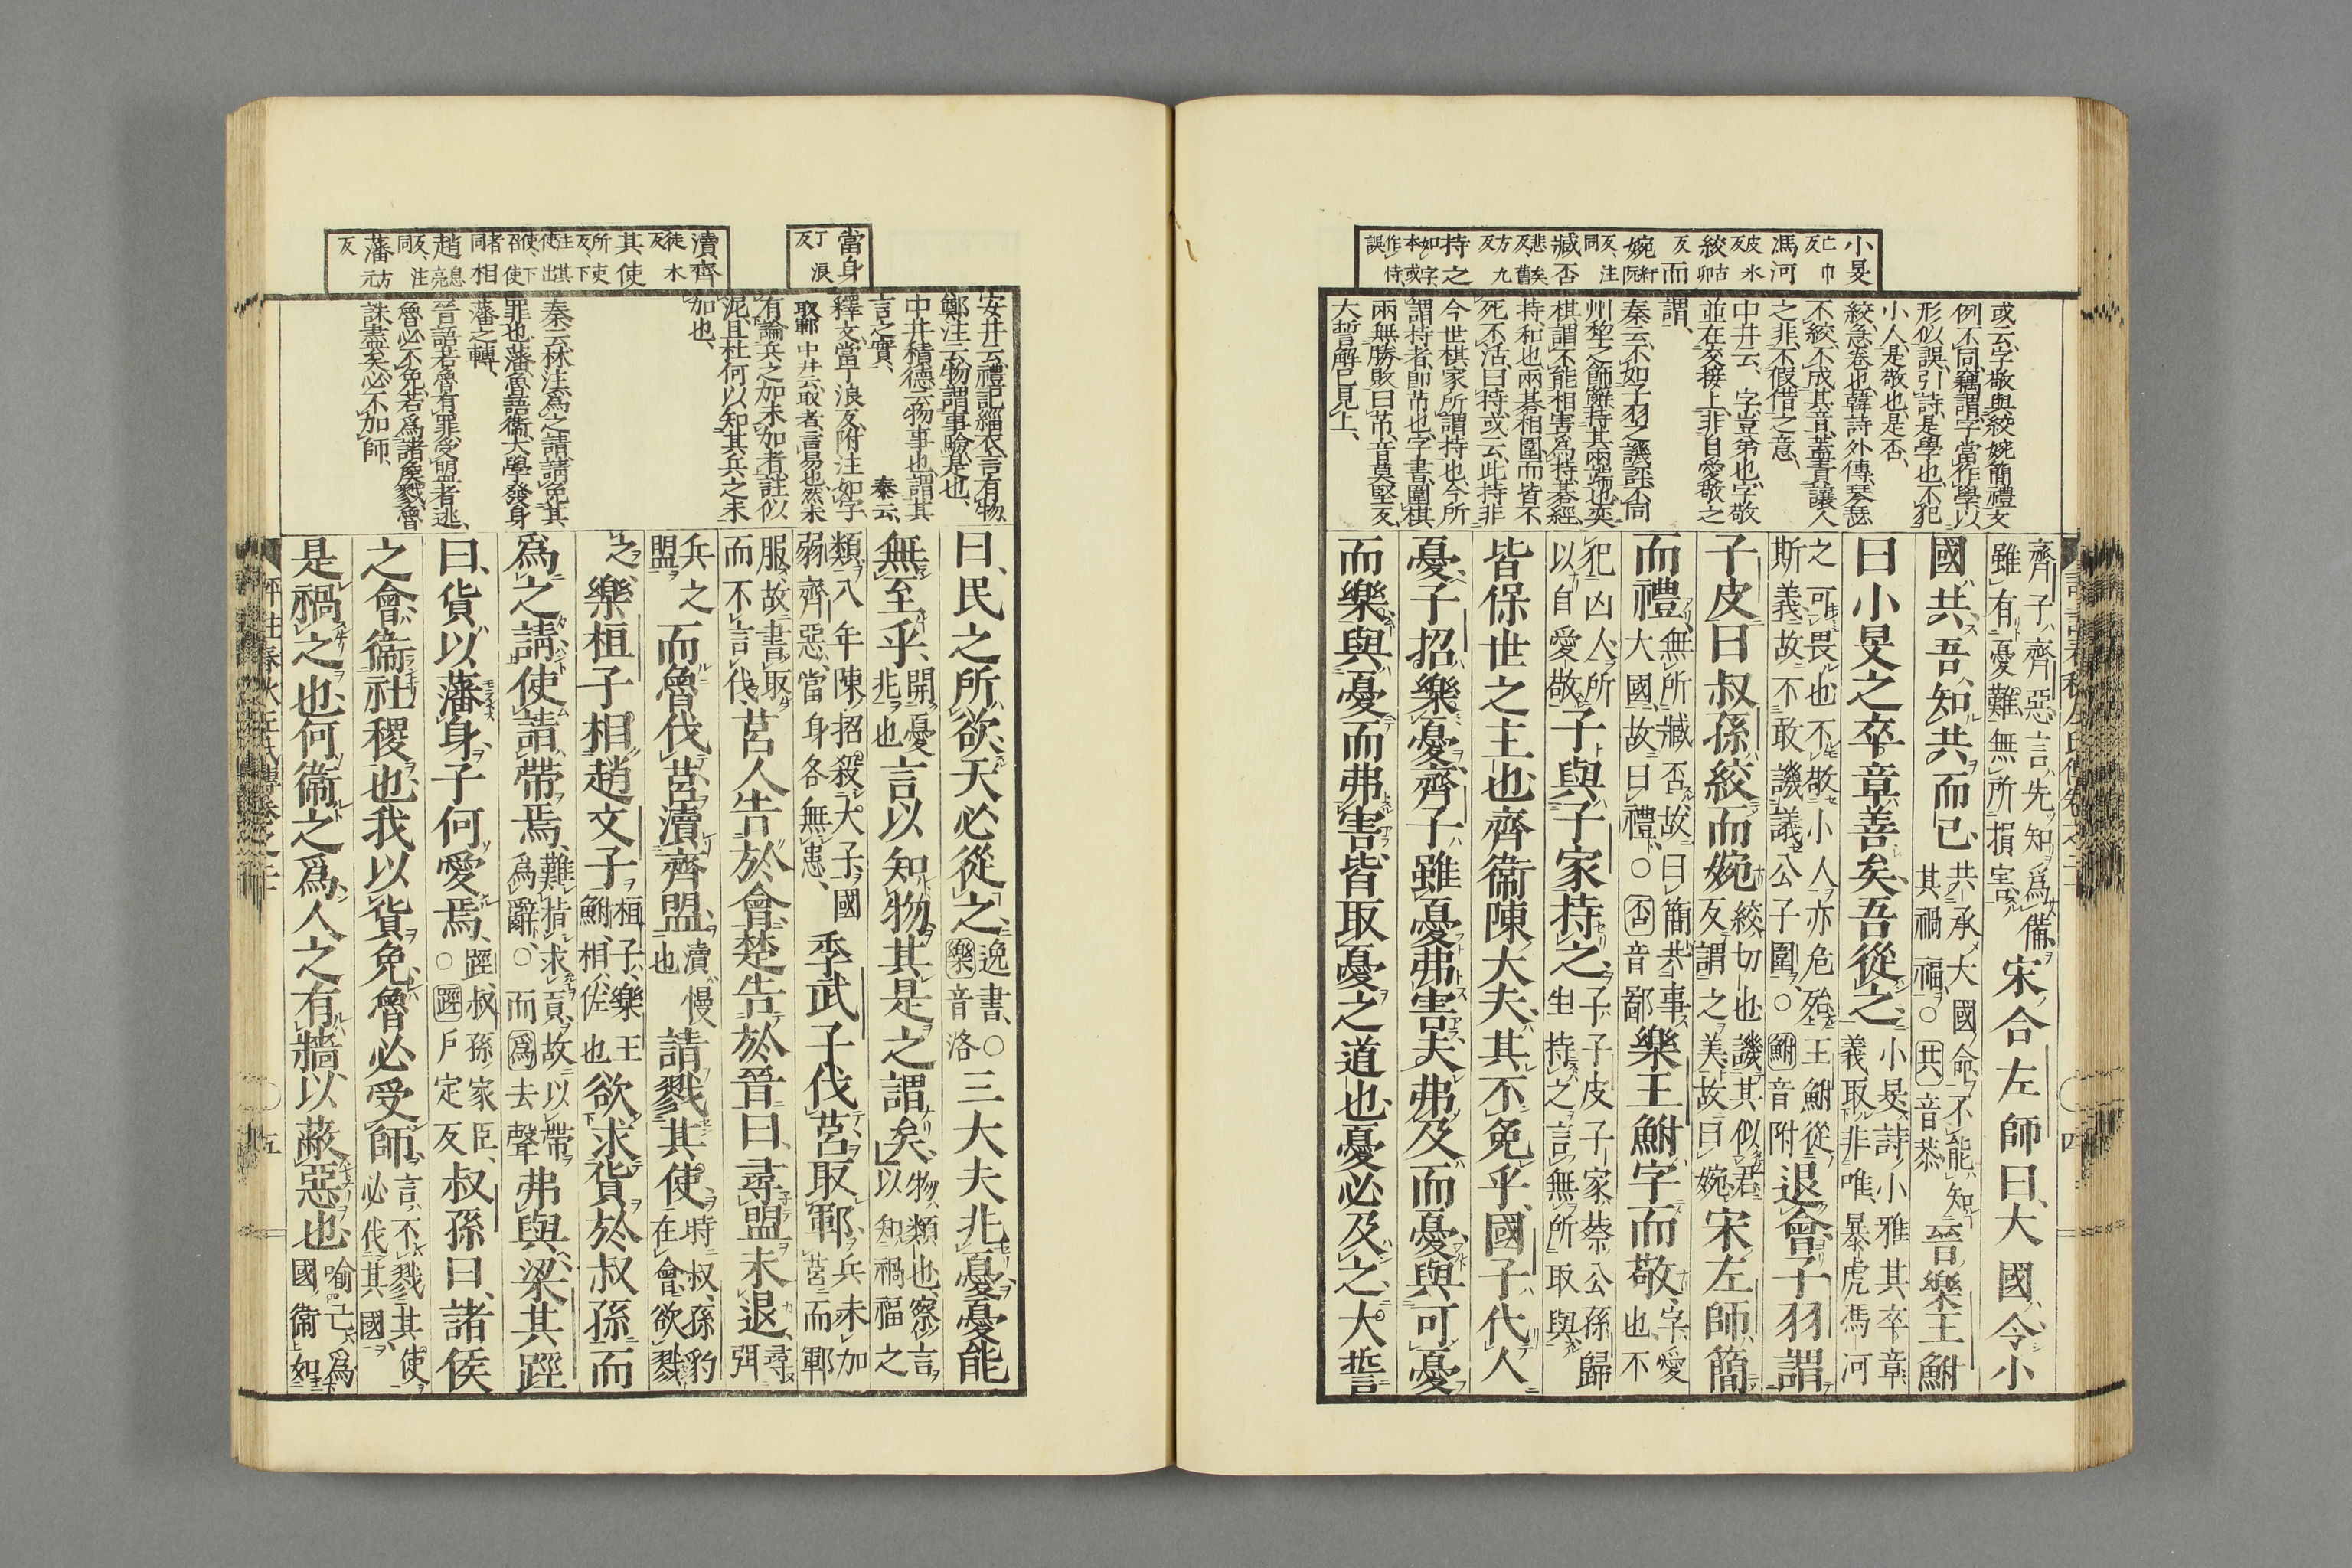 小旻 亡巾反
馮河 皮冰反
絞 古卯反
而婉 紆阮反、注同
臧否 悲矣反、舊方九反
持之 如字、本或作恃、誤
或云、字敬與絞婉簡禮文
例不同、竊謂、字當作學、以
形似誤、引詩是學也、不犯
小人是敬也、是否、
絞、急、卷也、韓詩外傳、琴瑟
不絞、不成其音、蓋責讓人
之非、不假借之意、
中井云、字、豈弟也、字敬
並在交接上、非自愛敬之
謂、
秦云、不如子羽之譏評、不同
州犂之飾辭、持其兩端也、奕
棋謂不能相害爲持、棊經
持、和也、兩棊相圍、而皆不
死不活、曰持、或云、此持非
今世棋家所謂持也、今所
謂持者、卽芇也、字書、圍棋
兩無勝敗曰芇、音莫堅反、
大誓解已見上、
齊子、齊惡、言先知爲備、
雖有憂難、無所損害、宋合左師曰、大國令小
國共、吾知共而已、共承大國命、不能知
其禍福、○共音恭、晉樂王鮒
曰、小旻之卒章善矣、吾從之、小旻、詩小雅、其卒章
義取非唯暴虎馮河
之可畏也、不敬小人亦危殆、王鮒從
斯義、故不敢譏議公子圍、○鮒音附、退會、子羽謂
子皮曰、叔孫絞而婉、絞、切也、譏其似君、
反謂之美、故曰婉、宋左師簡
而禮、無所臧否、故曰簡、共事
大國、故曰禮、○否音鄙、樂王鮒字而敬、字、愛
也、不
犯凶人、所
以自愛敬、子與子家持之、子、子皮、子家、蔡公孫歸
生、持之、言無所取與、
皆保世之主也、齊衞陳大夫其不免乎、國子代人
憂、子招樂憂、齊子雖憂弗害、夫弗及而憂、與可憂
而樂、與憂而弗害、皆取憂之道也、憂必及之、大誓
四
當身 丁浪反
瀆齊 徒木反
其使 所吏反、下注其使、出使、下召使者同
相趙 息亮反、注同
藩 方元反
安井云、禮記緇衣、言有物、
鄭注云、物謂事驗、是也、
中井積德云、物、事也、謂其
言之實、 秦云、
釋文、當丁浪反、附注、如字、
取鄆 中井云、取者、言易也、然未
有論兵之加未加者、註似
泥、且杜何以知其兵之未
加也、
秦云、林注、爲之請、請免其
罪也、藩、魯語衞、大學發身
藩之轉、
晉語、若魯有罪、受盟者逃、
魯必不免、若爲諸侯戮、魯
誅盡矣、必不加師、
曰、民之所欲、天必從之、逸書、○
樂音洛、三大夫兆憂、憂能
無至乎、開憂
兆也、言以知物、其是之謂矣、物、類也、察言
以知禍福之
類、八年、陳招殺大子、國
弱齊惡、當身各無患、季武子伐莒、取鄆、兵未加
莒而鄆
服、故書取
而不言伐、莒人告於會、楚告於晉曰、尋盟未退、尋弭
兵之
盟、而魯伐莒、瀆齊盟、瀆、慢
也、請戮其使、時叔孫豹
在會、欲戮
之、樂桓子相趙文子、桓子、樂王
鮒、相、佐也、欲求貨於叔孫、而
爲之請、使請帶焉、難指求貨、故以帶
爲辭、○而爲去聲、弗與、梁其踁
曰、貨以藩身、子何愛焉、踁、叔孫家臣、
○踁戶定反、叔孫曰、諸侯
之會、衞社稷也、我以貨免、魯必受師、言不戮其使、
必伐其國、
是禍之也、何衞之爲、人之有牆、以蔽惡也、喻己爲
國衞、如
評註春秋左氏傳卷之二十
五